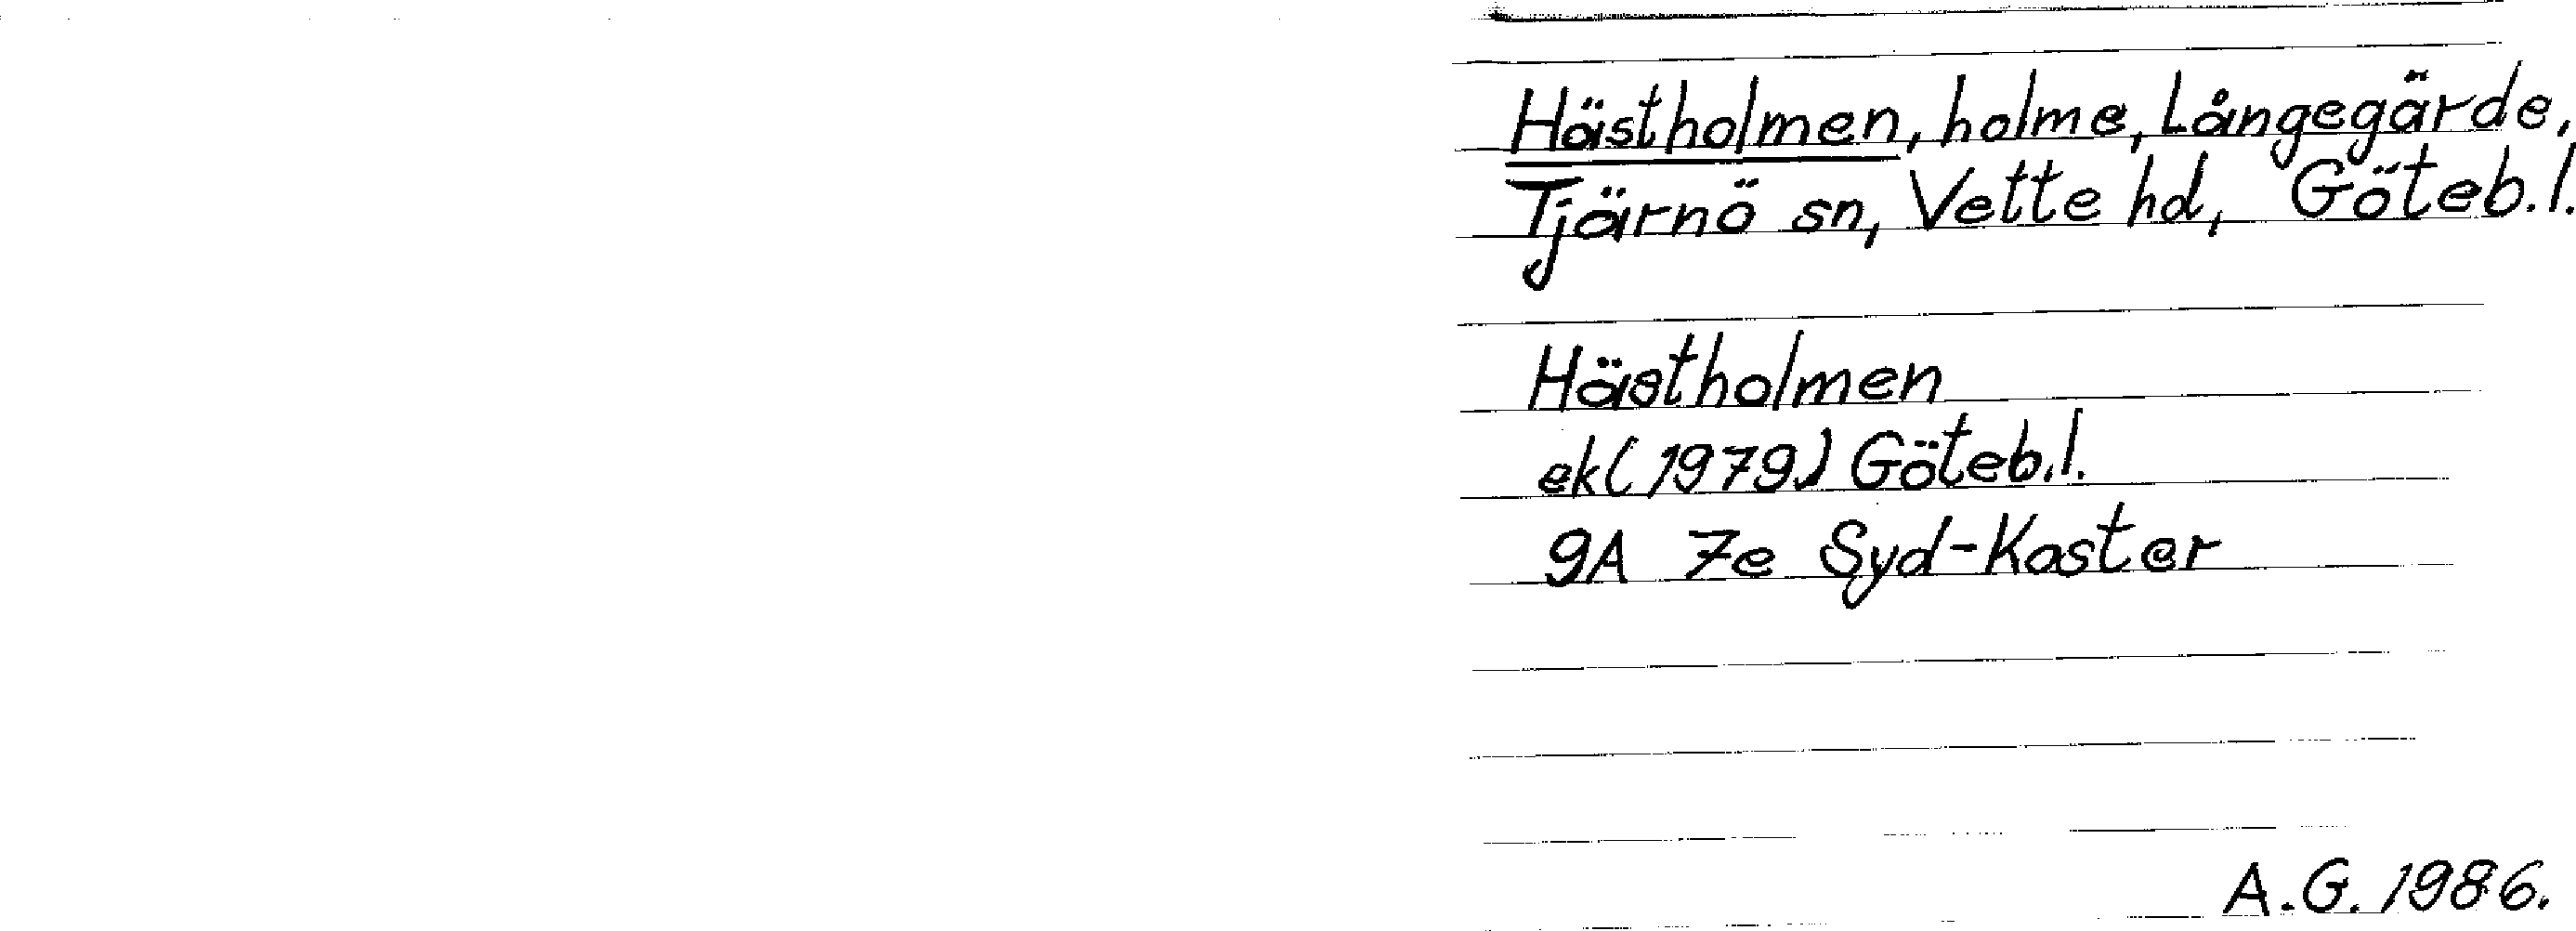 Hästholmen, holme, Långegärde,
Tjärnö sn, Vette hd, Göteb.l.
Hästholmen
ek(1979) Göteb.l.
9A 7e Syd-Koster
A.G. 1986.